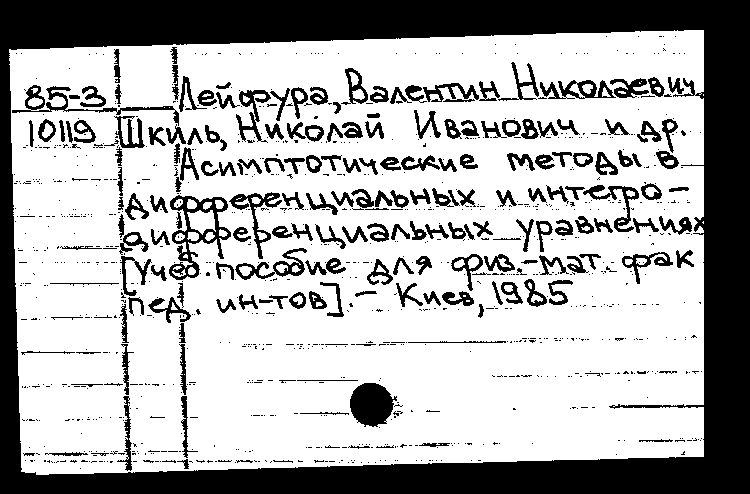 85-3 Лейфура, Валентин Николаевич,
10119 Шкиль, Николай Иванович и др.
Асимптотические методы в
дифференциальных и интегро-
дифференциальных уравнениях
[Учеб. пособие для физ.-мат. фак
пед. ин-тов]. - Киев, 1985